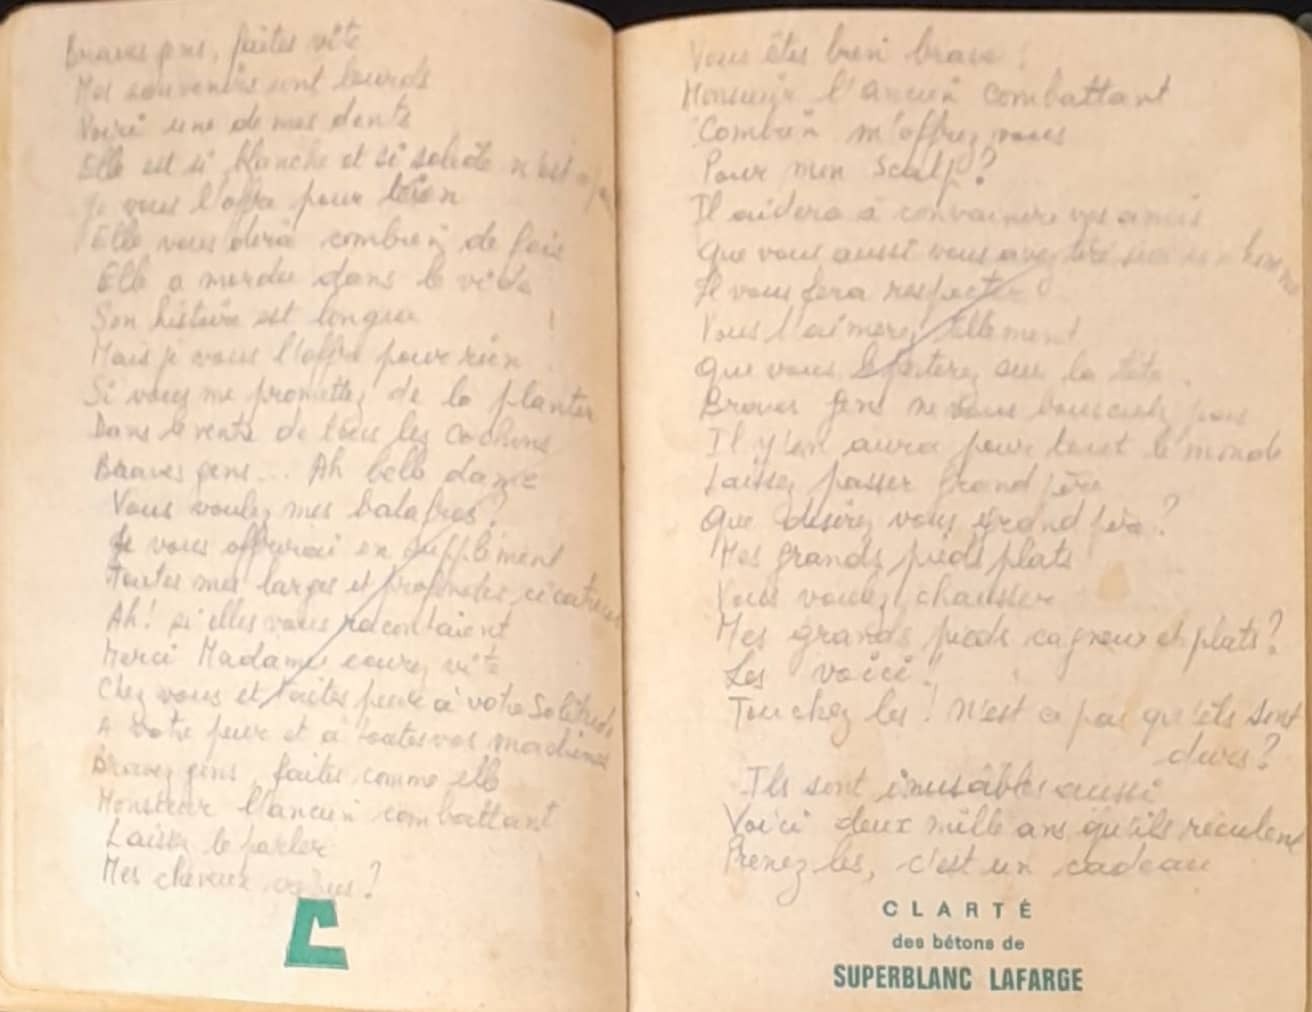 Braves gens, faites vite
Mes souvenirs sont lourds
Voici une de mes dents
Elle est si blanche et si solide n'est ce pas
Je vous l'offre pour rien
Elle vous dira combien de fois
Elle a mordu dans le vide
Son histoire est longue !
Mais je vous l'offre pour rien
Si vous me promettez de la planter
Dans le ventre de tous les cochons
Braves gens... Ah belle dame
Vous voulez mes balafres?
Je vous offrirai en supplément
Toutes mes larges et profondes cicatrices
Ah! si elles vous racontaient
Merci Madame courez vite
Chez vous et faites peur à votre solitude
A votre peur et à toutes vos machines
Braves gens, faites comme elle
Monsieur l'ancien combattant
Laissez le parler
Mes cheveux
C
Vous êtes bien brave!
Monsieur l'ancien combattant
Combien m'offrez vous
Pour mon scalp?
Il aidera à convaincre vos amis
Que vous aussi vous avez tiré sur un homme
Il vous fera respecter
Vous l'aimerez tellement
Que vous le porterez sur la tête.
Braves gens ne vous bousculez pas
Il y'en aura pour tout le monde
Laissez passer grand père
Que désirez vous grand père?
Mes grands pieds plats
Vous voulez chausser
Mes grands pieds cagneux et plats?
Les voici!
Touchez les! N'est ce pas qu'ils sont
durs?
Ils sont inusâbles aussi
Voici deux mille ans qu'ils reculent
Prenez les, c'est un cadeau
CLARTÉ
des bétons de
SUPERBLANC LAFARGE